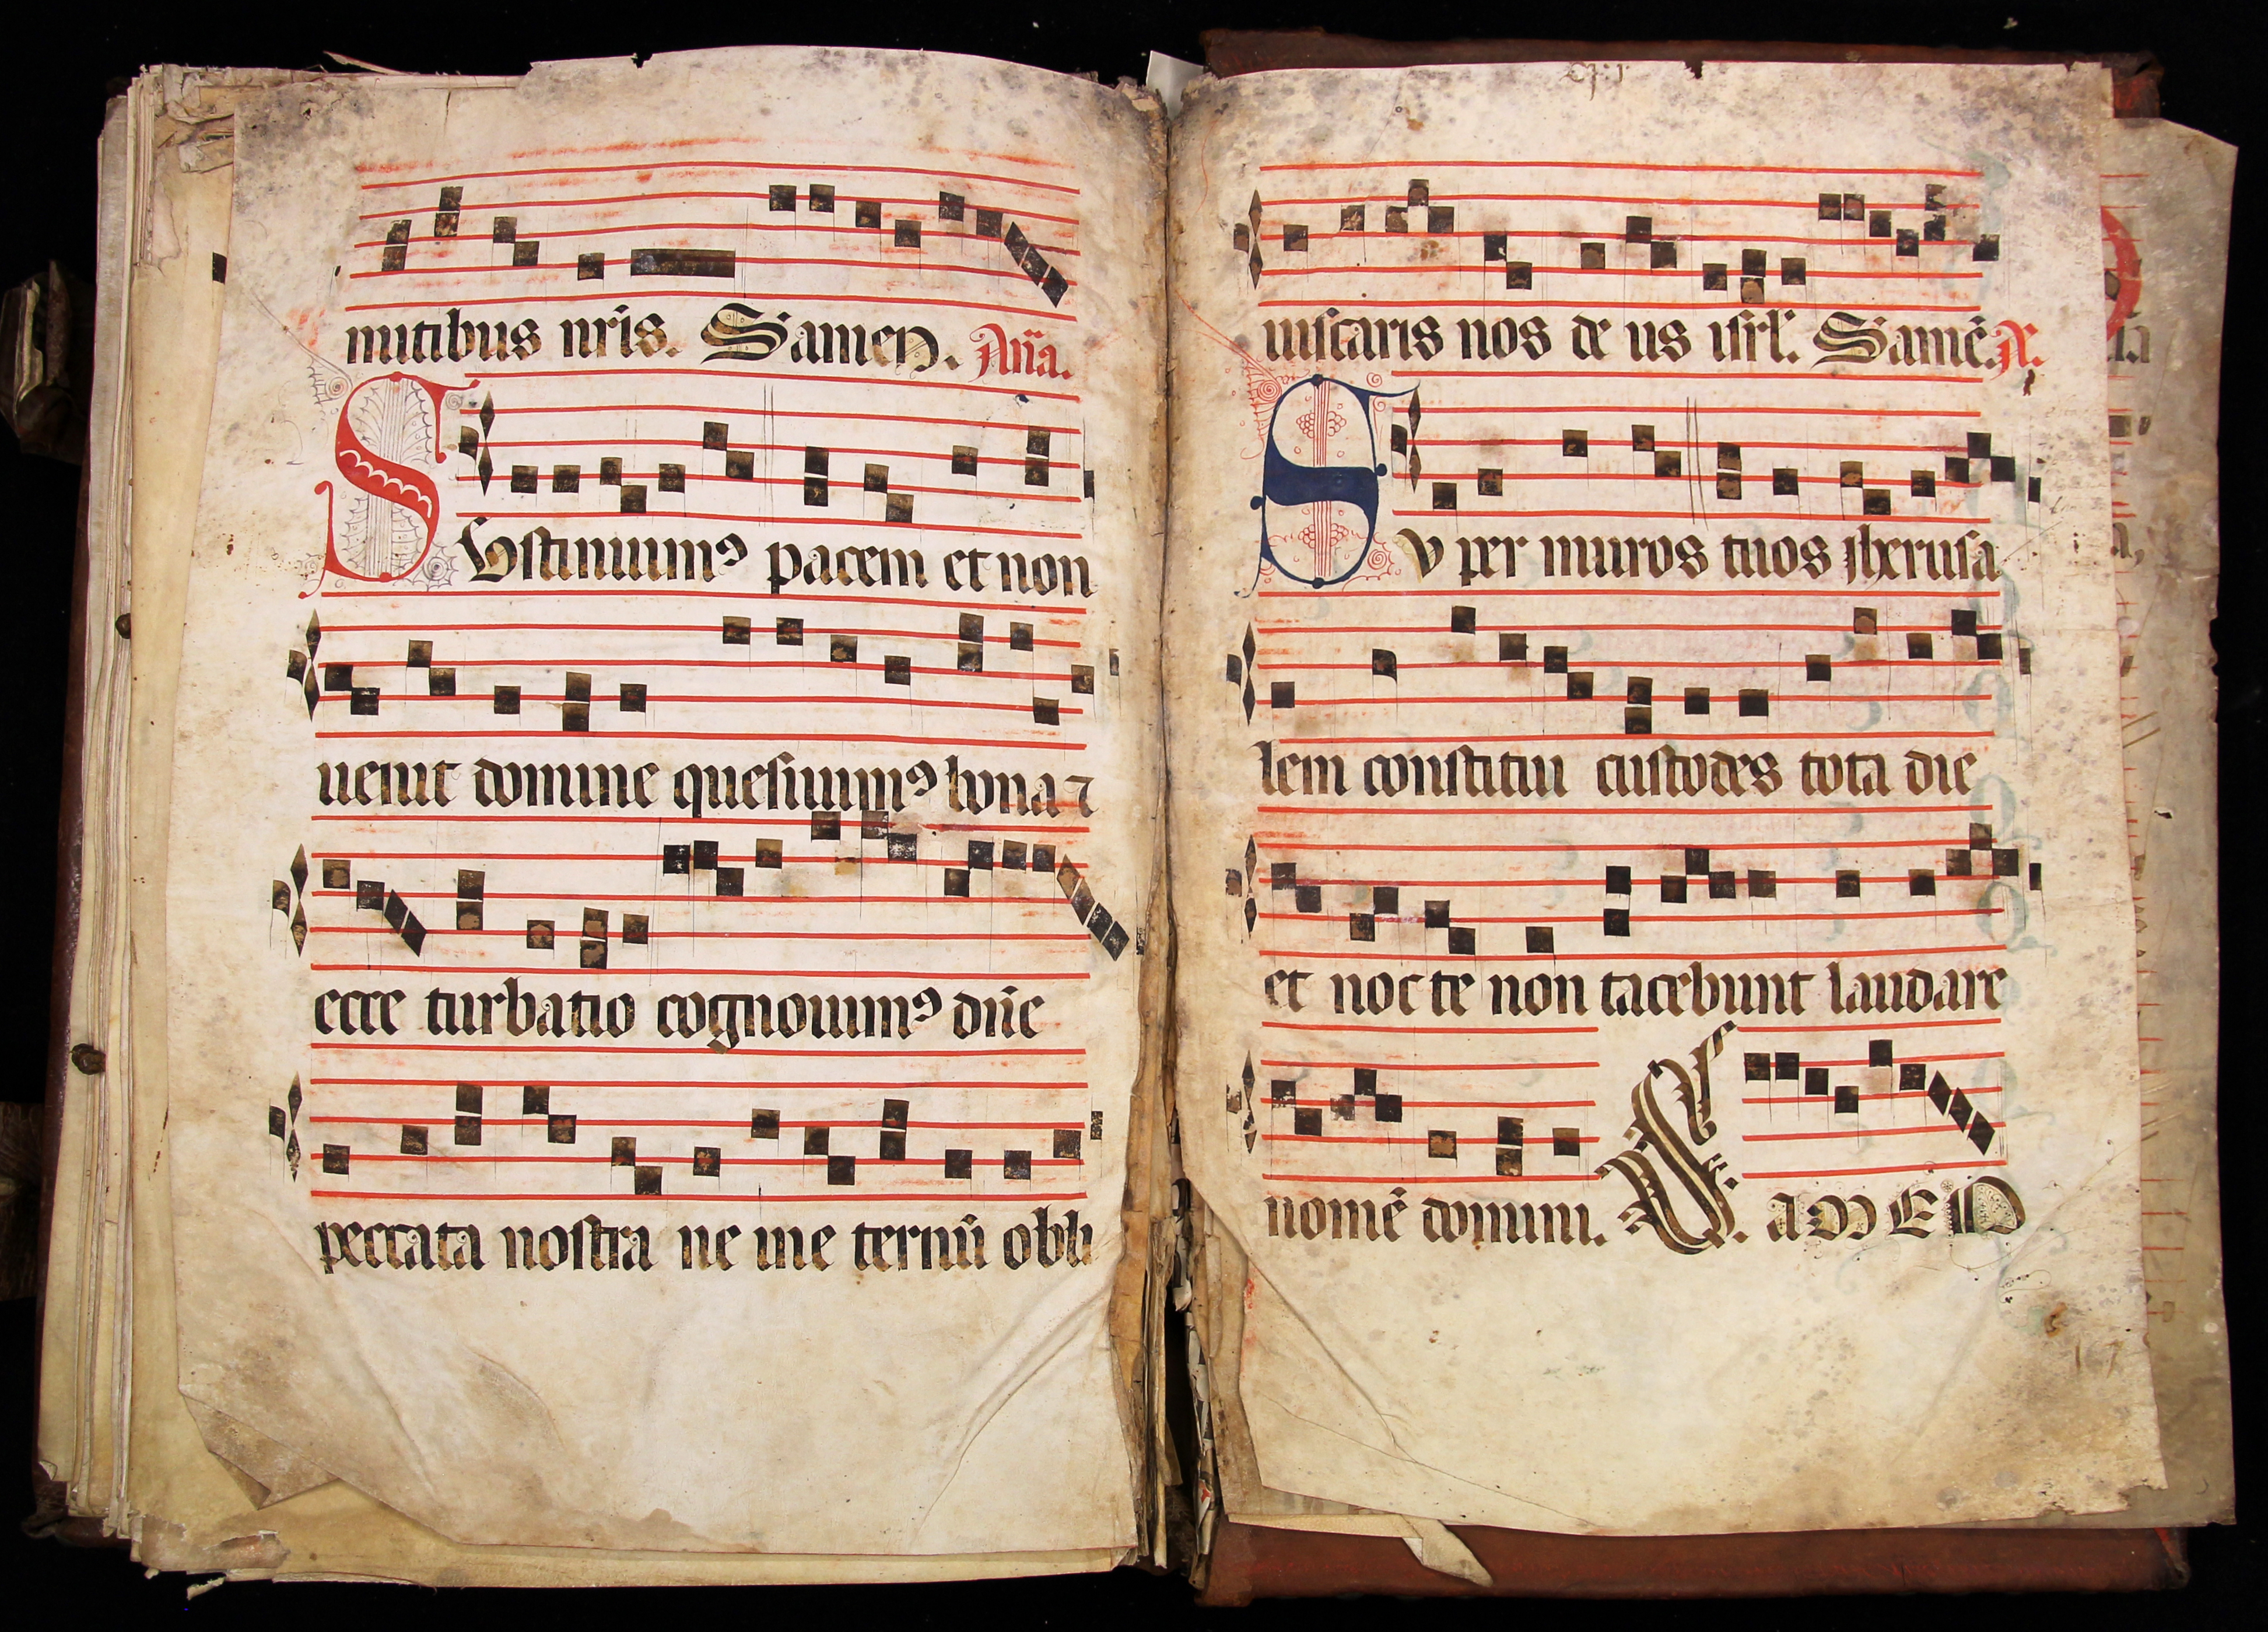 nutibus nr̃is. Samen. An̄a.
Sustinuimꝰ pacem et non
uenit domine quesiuimꝰ bona ⁊
ecce turbatio cognouimꝰ dñe
peccata nostra ne me ternū obli
uiscaris nos de us isrl̃. Samē. A.
Su per muros tuos iherusa
lem constitui custodes tota die
et nocte non tacebunt laudare
nomē domini. S. amEN